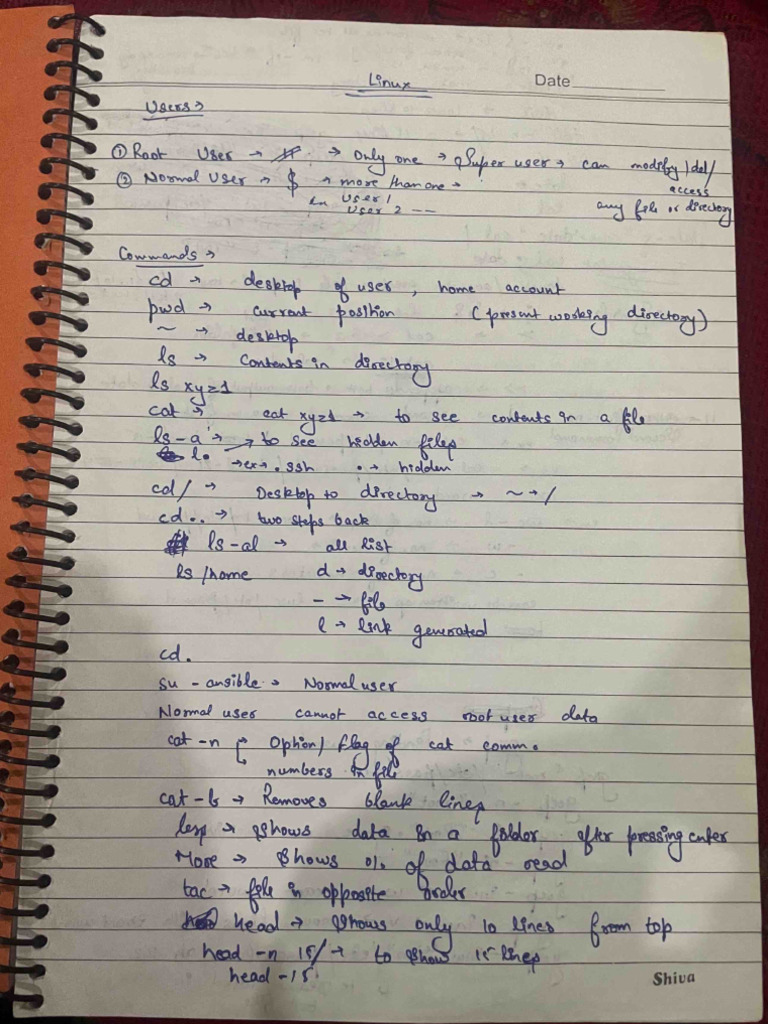 Linux Date
Users →
① Root User → # → Only one → Super user → can modify/del/
access
② Normal User → $ → more than one →
any file or directory
User 1
User 2 --
Commands →
cd → desktop of user, home account
pwd → current position (present working directory)
~ → desktop
ls → contents in directory
ls xyz1
cat → cat xyz1 → to see contents in a file
ls -a → to see hidden files
l.
→ ex → .ssh . → hidden
cd / → Desktop to directory → ~ → /
cd .. → two steps back
ls -al → all list
ls /home d → directory
- → file
l → link generated
cd.
su - ansible → Normal user
Normal user cannot access root user data
cat -n → Option/ flag of cat comm.
numbers in file
cat -b → Removes blank lines
less → Shows data in a folder after pressing enter
More → Shows % of data read
tac → file in opposite order
head → Shows only 10 lines from top
head -n 15/ → to show 15 lines
head -15
Shiva